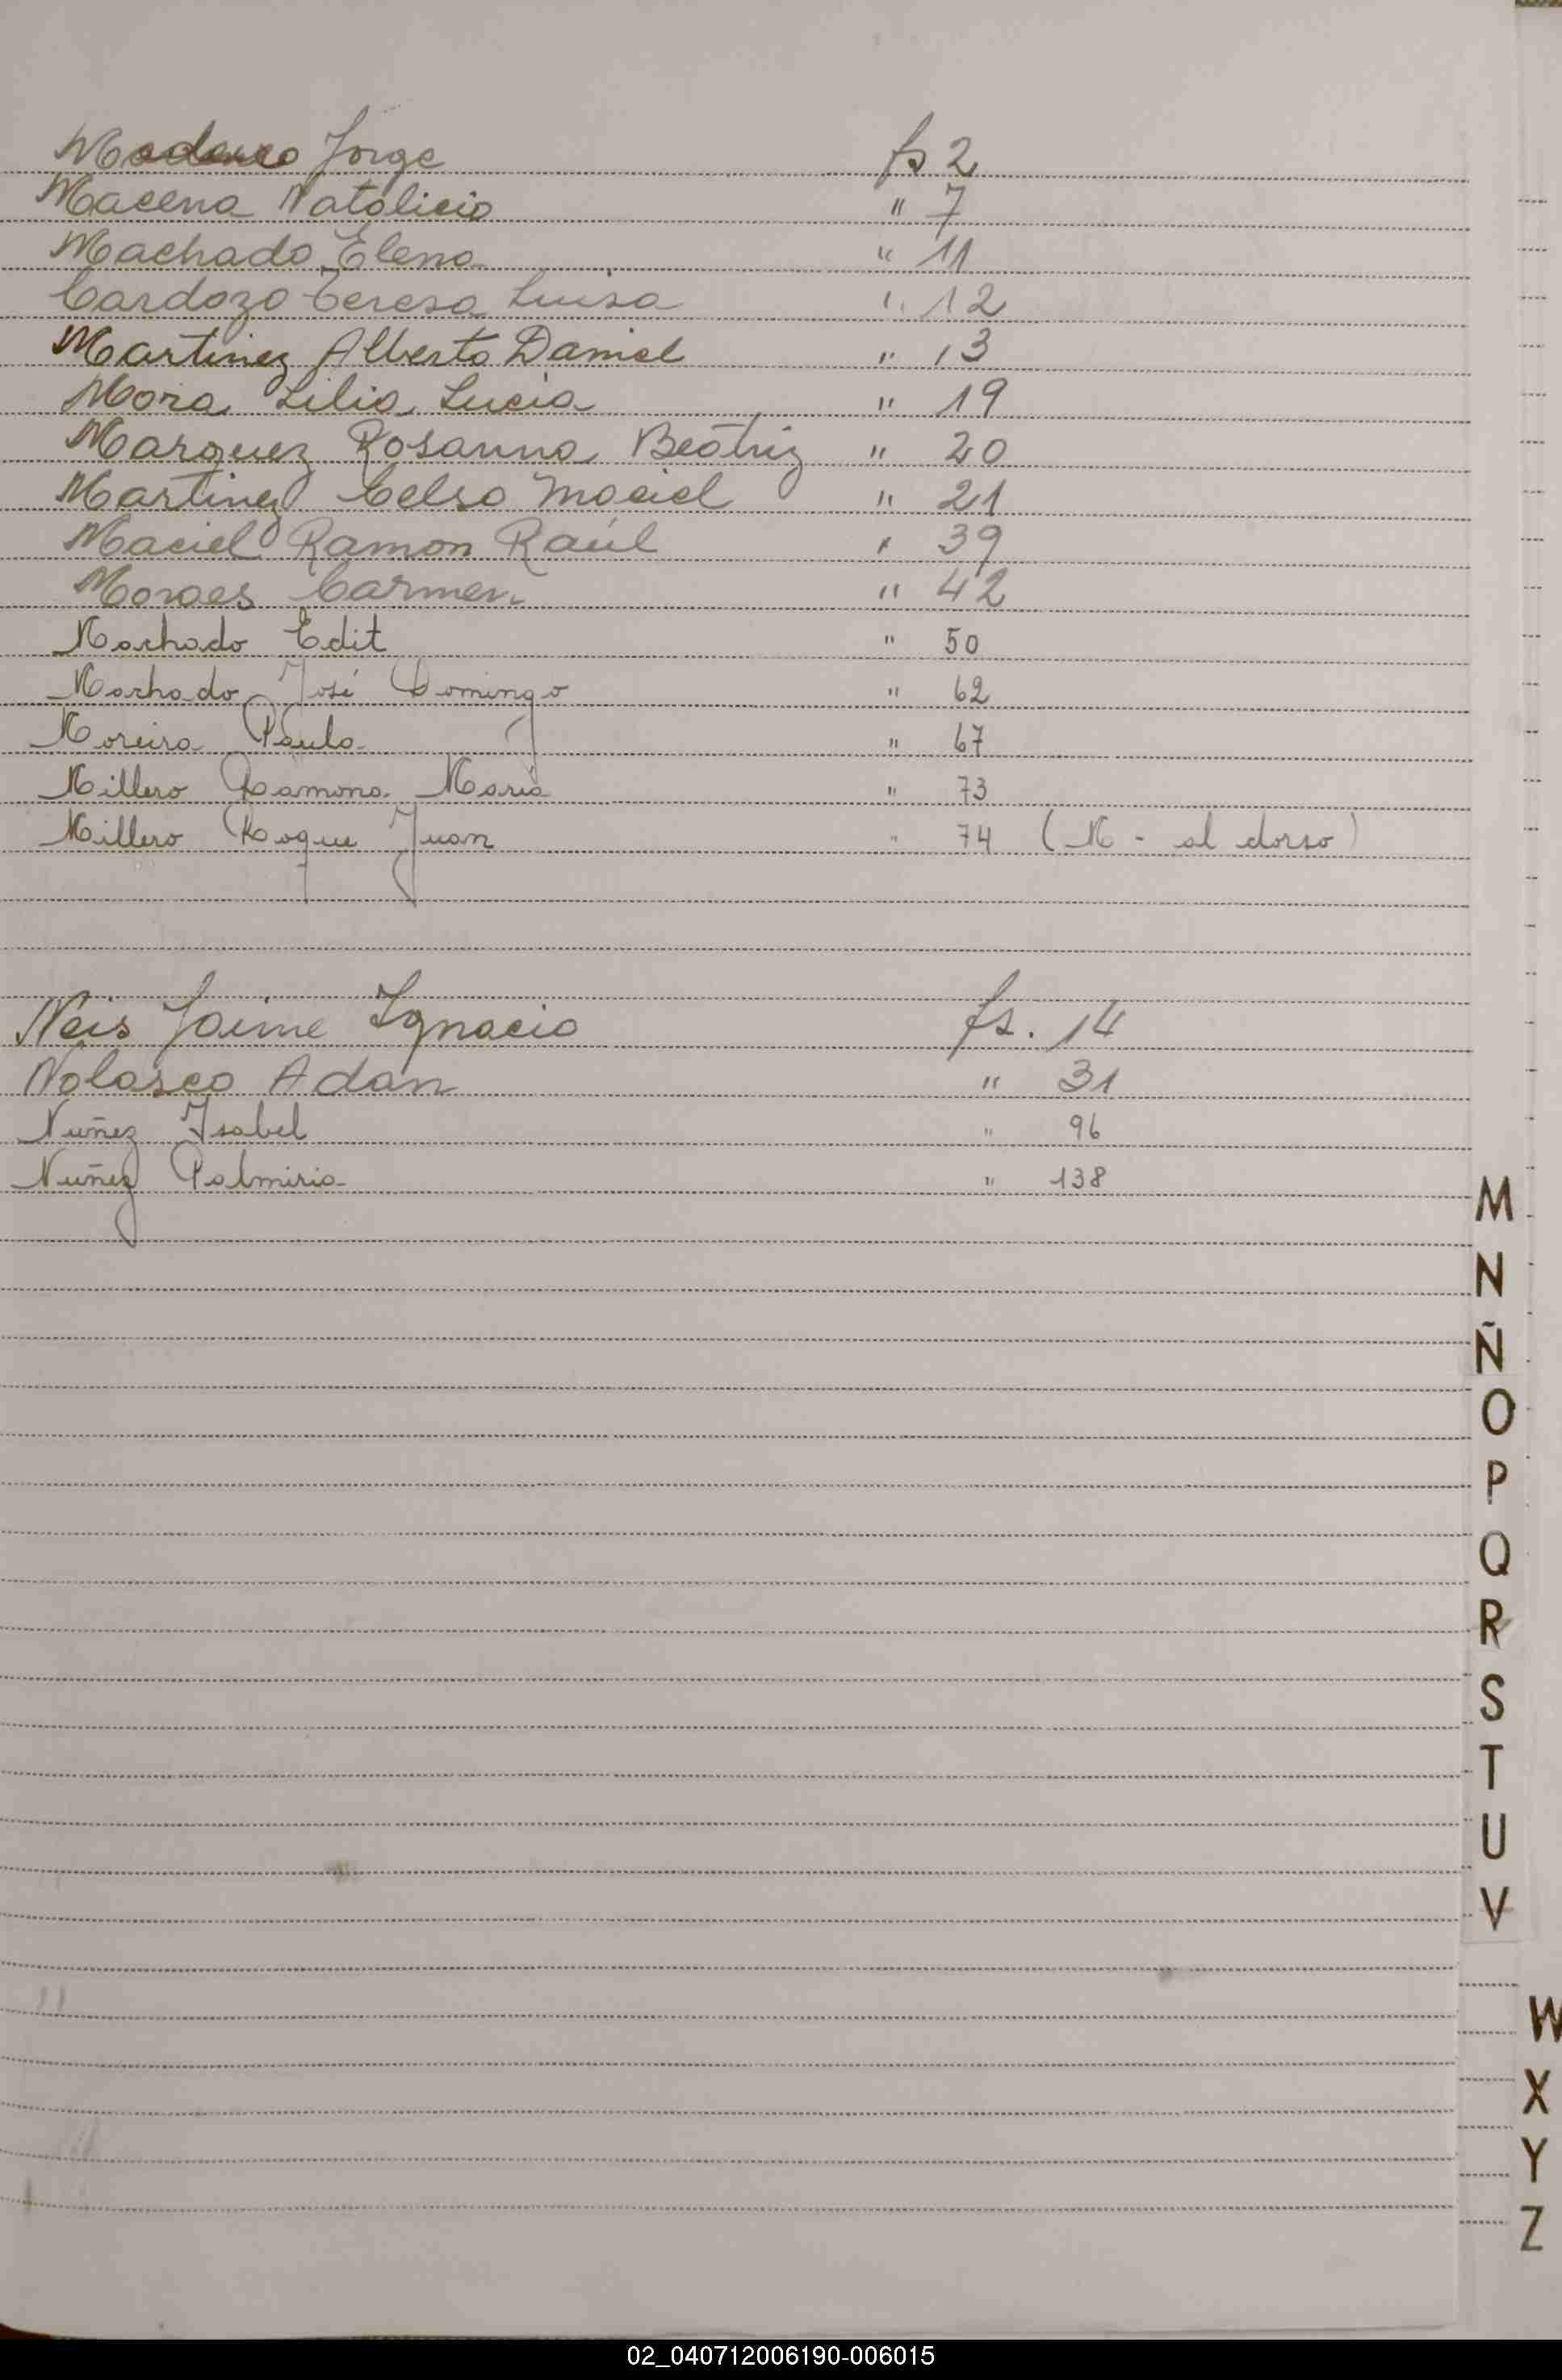 Jorge fs 2
Macena Natalicio " 7
Machado Elena " 11
Cardozo Teresa Luisa " 12
Martinez Alberto Daniel " 13
Mora Lilia Lucia " 19
Marquez Rosanna Beatriz " 20
Martinez Celso Maciel " 21
Maciel Ramon Raúl " 39
Moraes Carmen " 42
Machado Edit " 50
Machado José Domingo " 62
Moreira Paula " 67
Millero Ramona Maria " 73
Millero Roque Juan " 74 (M - al dorso)
Neis Jaime Ignacio fs. 14
Nolasco Adan " 31
Nuñez Isabel " 96
Nuñez Palmiria " 138
M
N
Ñ
O
P
Q
R
S
T
U
V
W
X
Y
Z
02_040712006190-006015